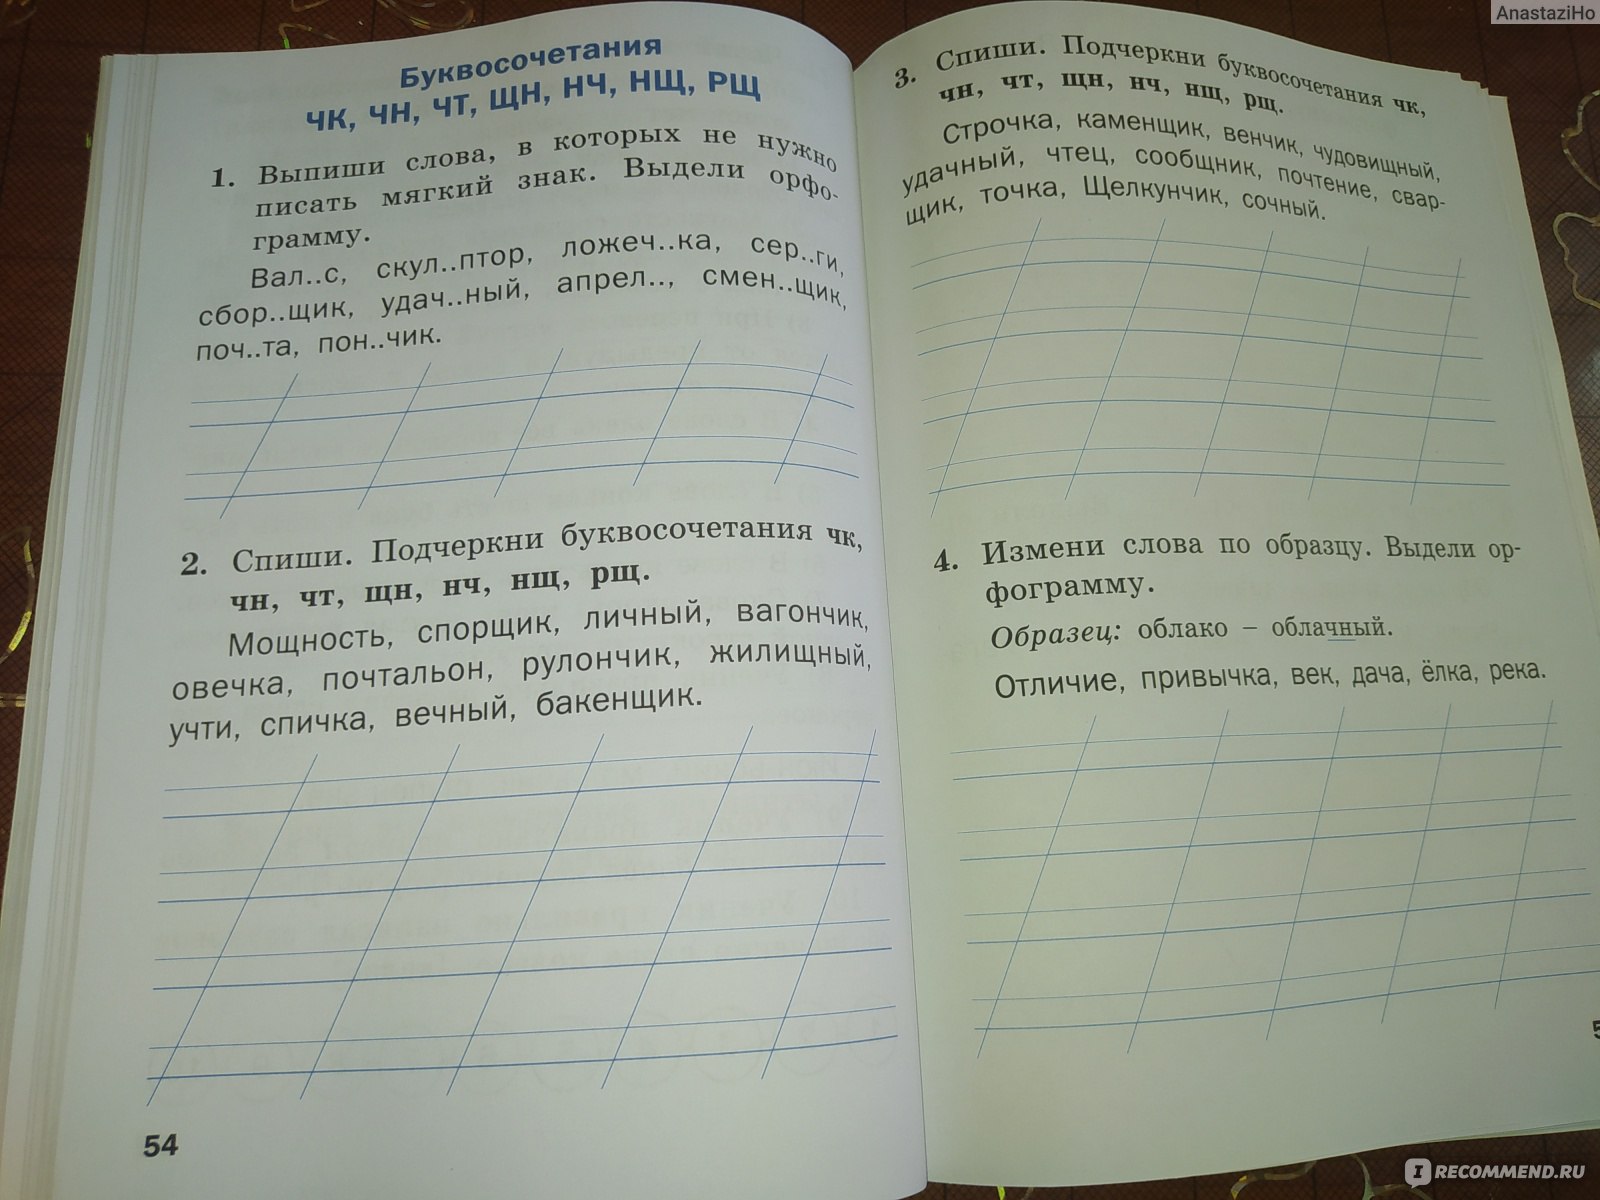 AnastaziHo
Буквосочетания
ЧК, ЧН, ЧТ, ЩН, НЧ, НЩ, РЩ
1. Выпиши слова, в которых не нужно
писать мягкий знак. Выдели орфо-
грамму.
Вал..с, скул..птор, ложеч..ка, сер..ги,
сбор..щик, удач..ный, апрел.., смен..щик,
поч..та, пон..чик.
2. Спиши. Подчеркни буквосочетания чк,
чн, чт, щн, нч, нщ, рщ.
Мощность, спорщик, личный, вагончик,
овечка, почтальон, рулончик, жилищный,
учти, спичка, вечный, бакенщик.
54
3. Спиши. Подчеркни буквосочетания чк,
чн, чт, щн, нч, нщ, рщ.
Строчка, каменщик, венчик, чудовищный,
удачный, чтец, сообщник, почтение, свар-
щик, точка, Щелкунчик, сочный.
4. Измени слова по образцу. Выдели ор-
фограмму.
Образец: облако – облачный.
Отличие, привычка, век, дача, ёлка, река.
RECOMMEND.RU